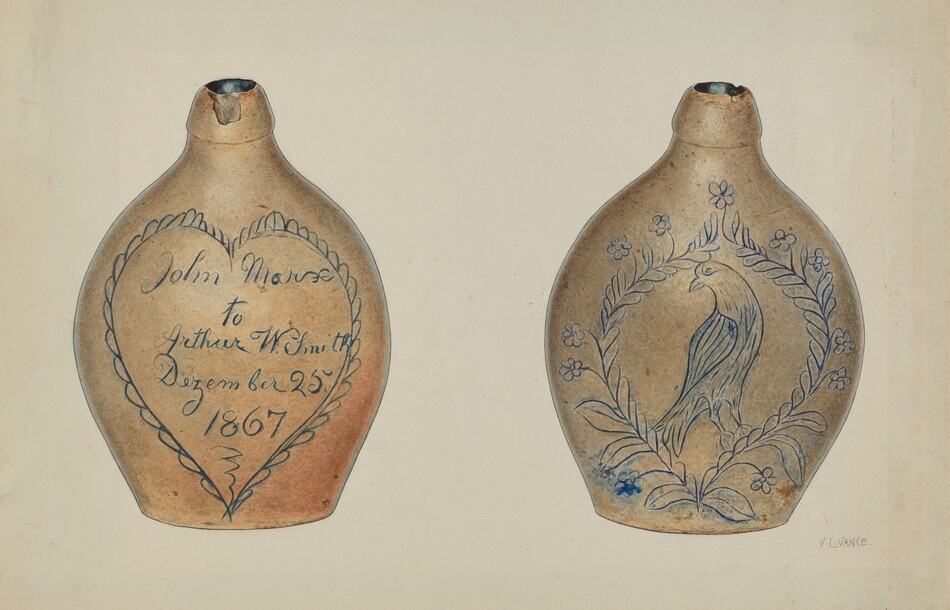 John Marx
to
Arthur W. Smith
Dezember 25
1867
V. L. VANCE.